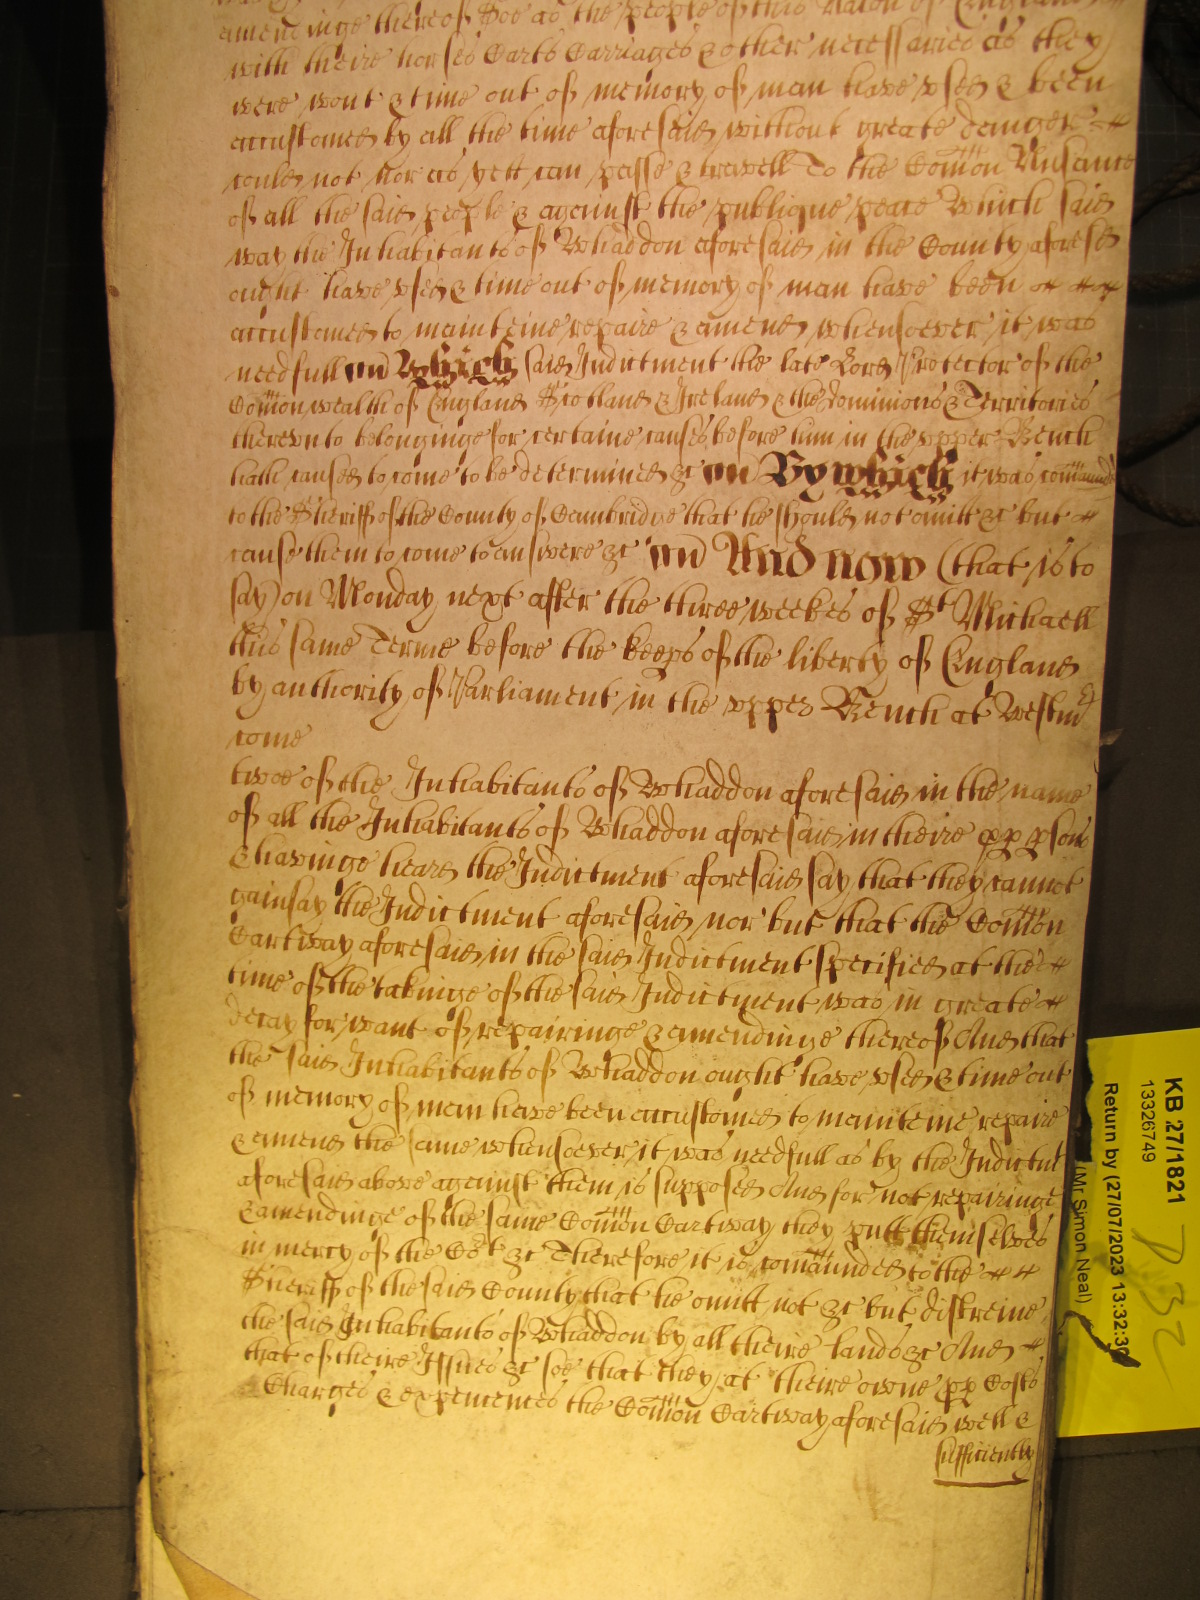 amendinge thereof Soe as the people of this Nation of England
with theire horses Carts Carriages & other necessaries as they
were wont & time out of memory of man have vsed & been
accustomed by all the time aforesaid without greate danger
could not nor as yett can passe & travell To the Com̄on Nusance
of all the said people & against the publique peace Which said
way the Inhabitants of Whaddon aforesaid in the County aforesd
ought have vsed & time out of memory of man have been
accustomed to mainteine repaire & amend whensoever it was
needfull Which said Indictment the late Lord Protector of the
Com̄onwealth of England Scotland & Ireland & the Dominions & Territories
therevnto belonginge for certaine causes before him in the vpper Bench
hath caused to come to be determined &c By which it was com̄aunded
to the Sheriff of the County of Cambridge that he should not omitt &c but
cause them to come to answere &c And now (that is to
say) on Monday next after the three weekes of St Michaell
this same Terme before the keeps of the liberty of England
by authority of Parliament in the vpper Bench at Westmr
come
twoe of the Inhabitants of Whaddon aforesaid in the name
of all the Inhabitants of Whaddon aforesaid in theire pp psons
& havinge heard the Indictment aforesaid say that they cannot
gainsay the Indictment aforesaid nor but that the Com̄on
Cartway aforesaid in the said Indictment specified at the
time of the takinge of the said Indictment was in greate
decay for want of repairinge & amendinge thereof And that
the said Inhabitants of Whaddon ought have vsed & time out
of memory of man have been accustomed to mainteine repaire
& amend the same whensoever it was needfull as by the Indictmt
aforesaid above against them is supposed And for not repairinge
& amendinge of the same Com̄on Cartway they putt themselves
in mercy of the Cort &c Therefore it is com̄aunded to the
Sheriff of the said County that he omitt not &c but distreine
the said Inhabitants of Whaddon by all theire lands &c And
that of theire Issues &c soe that they at theire owne pp Costs
Charges & expences the Com̄on Cartway aforesaid well &
sufficiently
KB 27/1821
13326749
Return by (27/07/2023 13:32:30
(Mr Simon Neal)
P32